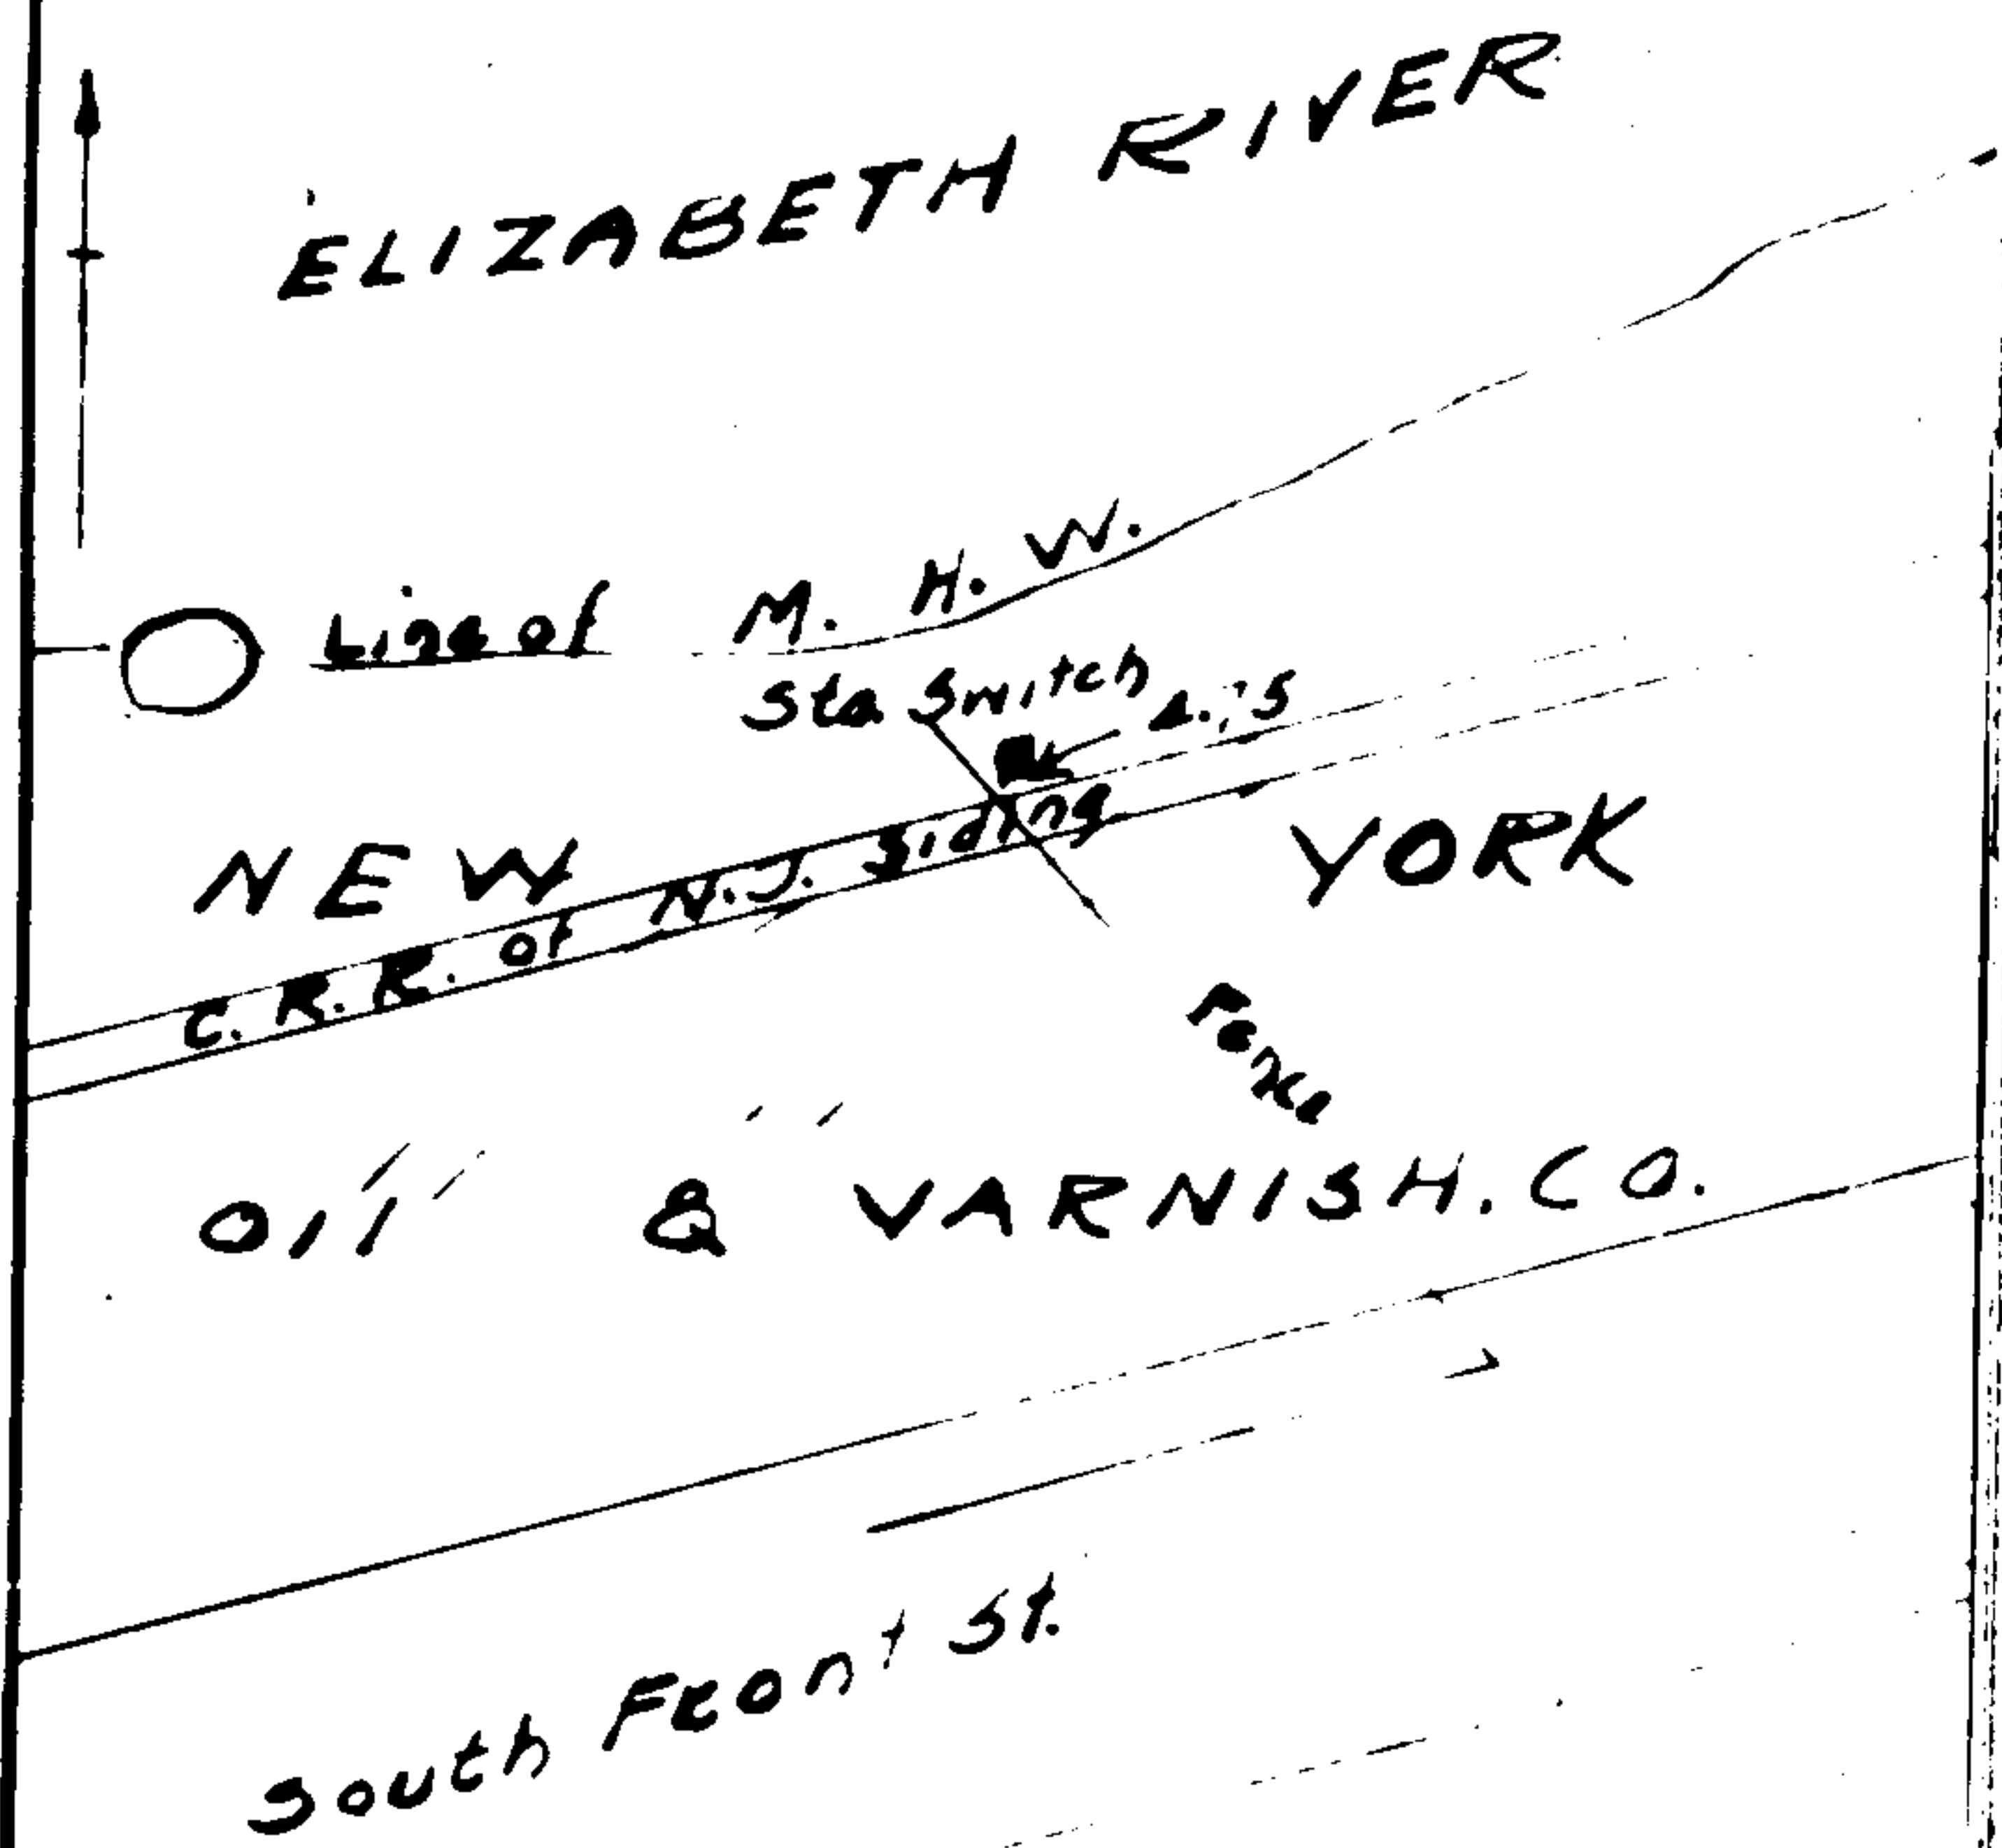 ELIZABETH RIVER
Line of M. H. W.
Sta Switch
NEW YORK
C. R. R. of N.J. Siding
Fence
OIL & VARNISH. CO.
South Front St.